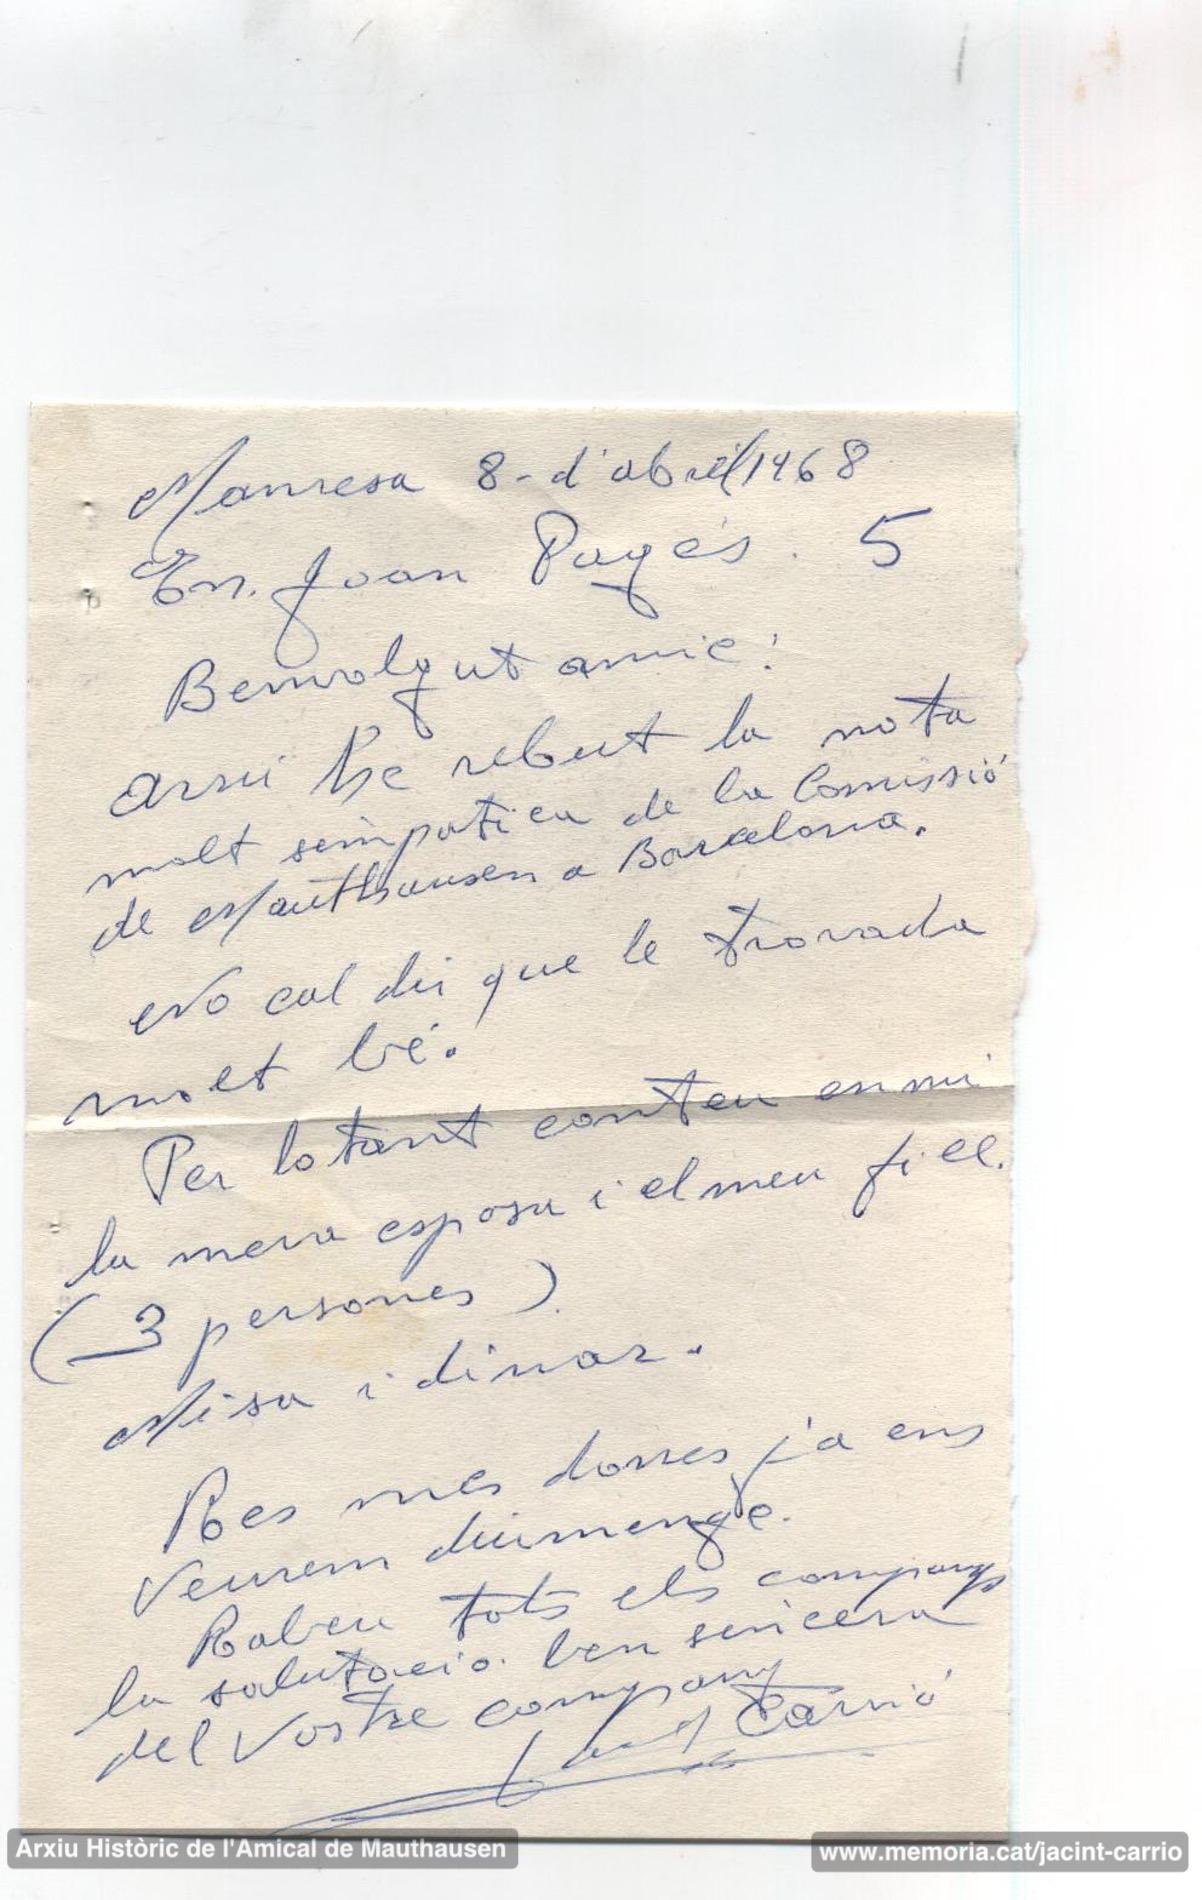 Manresa 8-d'abril/1968
En. Joan Pagés. 5
Benvolgut amic:
Arrui he rebut la nota
molt simpatica de la Comissió
de Mauthausen a Barcelona.
No cal dir que le trovada
molt bé.
Per lo tant conteu en mi
la meva esposa i el meu fill.
(3 persones).
Misa i dinar.
Res mes dones ja ens
Veurem diumenge.
Rabeu tots els companys
la salutacio ben sincera
del Vostre company
Jacint Carrió
Arxiu Històric de l'Amical de Mauthausen
www.memoria.cat/jacint-carrio